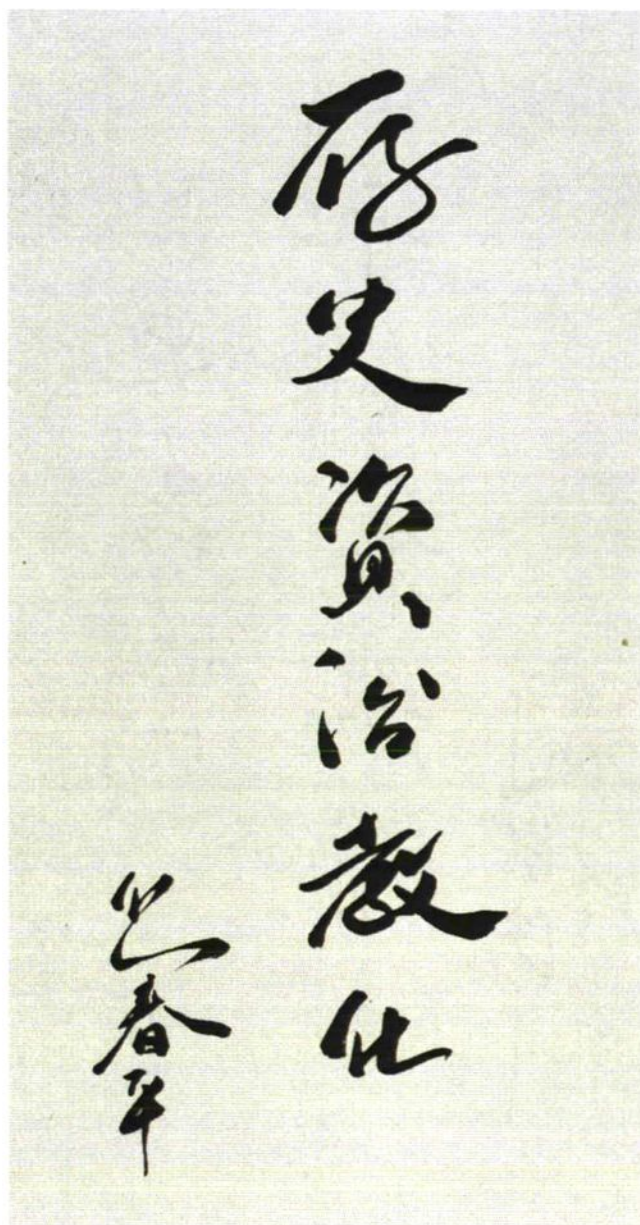 存史资治教化
春平